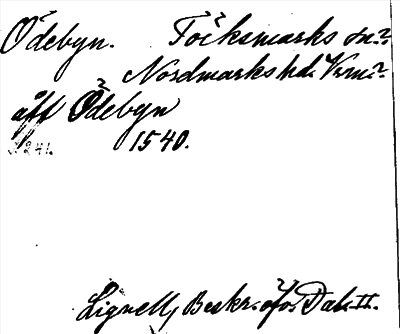 Ödebyn. Töcksmarks sn.
Nordmarks hd. Verm.
äff Ödebyn
1540.
Lignell, Beskr. öfv. Dal. II.